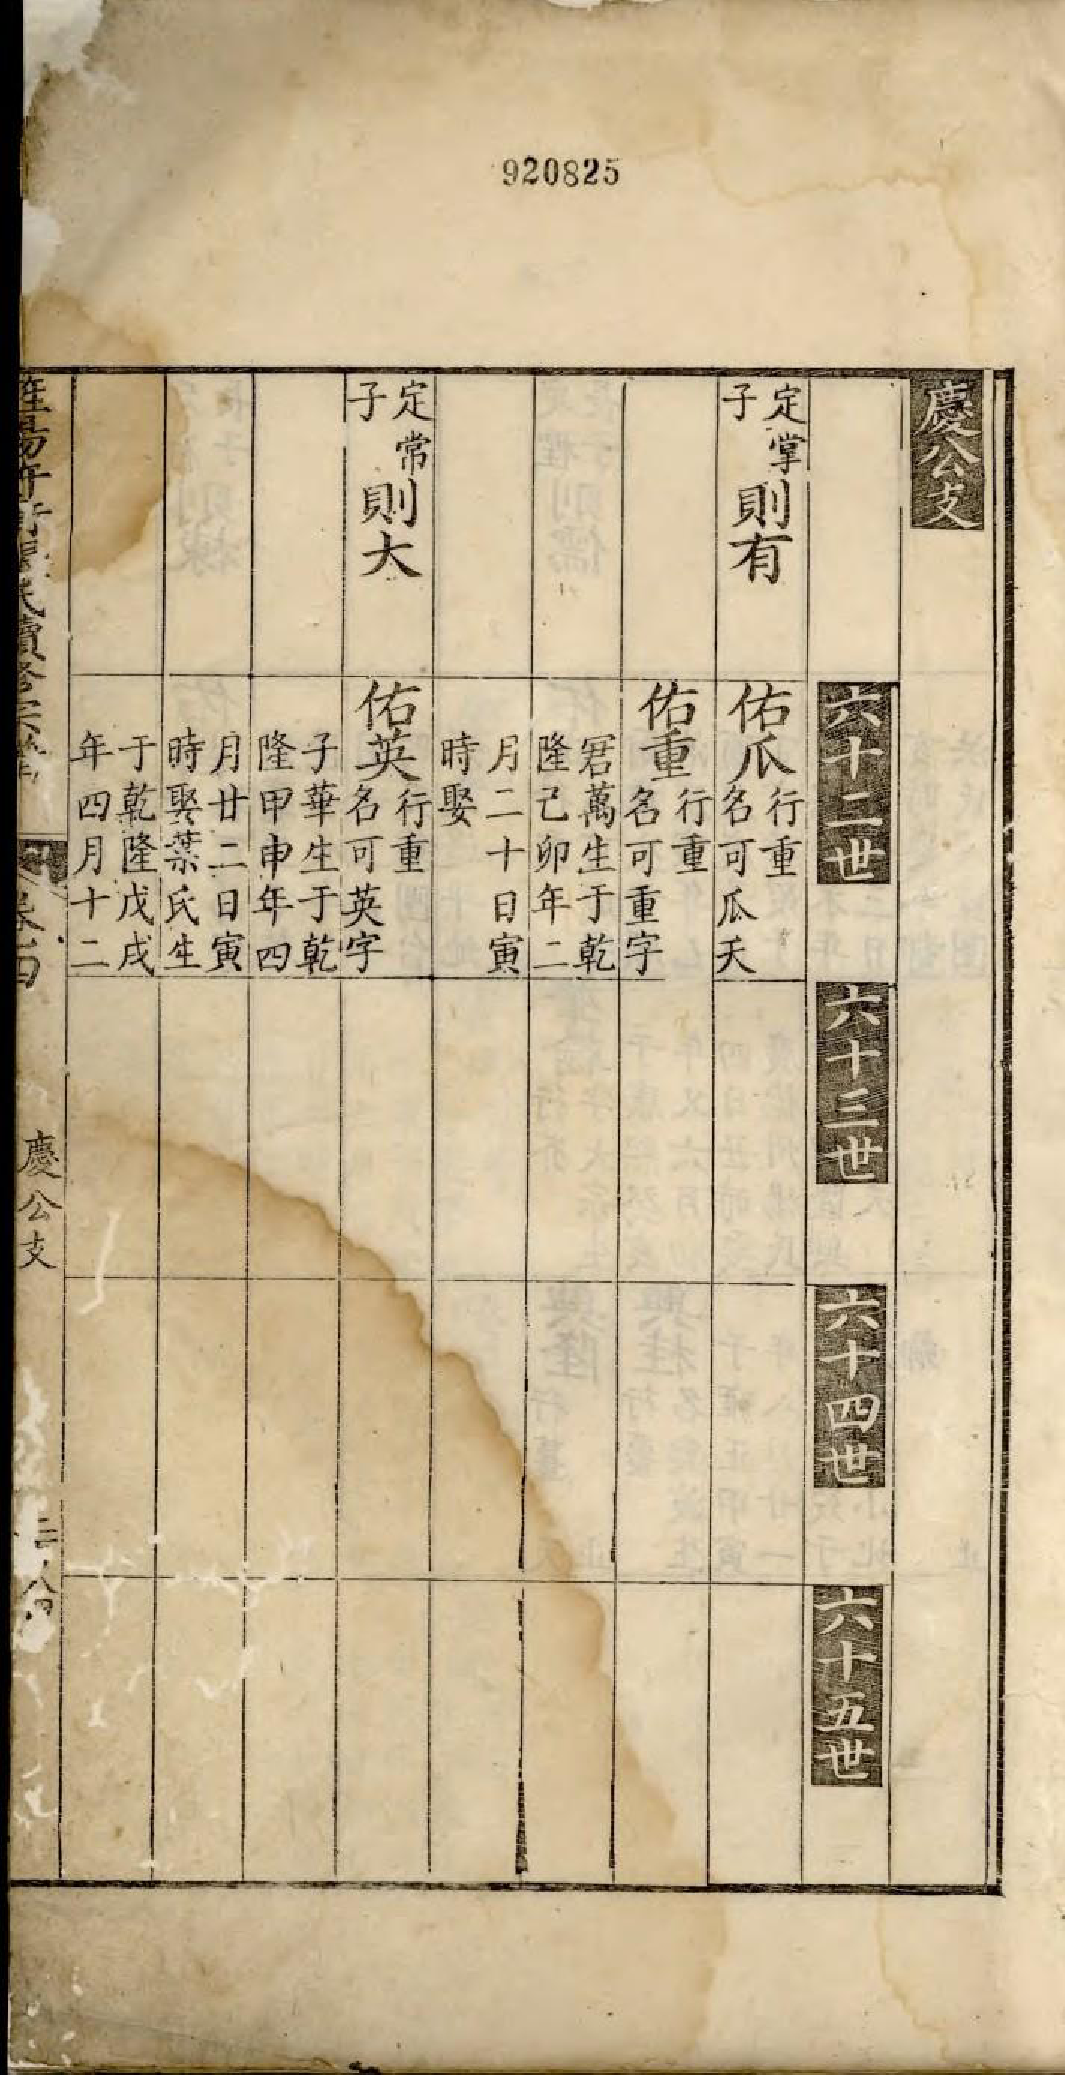 920825
慶公支
六十二世
六十三世
六十四世
六十五世
定掌
子
則有
佑瓜
行重
名可瓜夭
佑重
行重
名可重字
君萬生于乾
隆己卯年二
月二十日寅
時娶
定常
子
則大
佑英
行重
名可英字
子華生于乾
隆甲申年四
月廿二日寅
時娶葉氏生
于乾隆戊戌
年四月十二
氏續修宗譜
慶公支